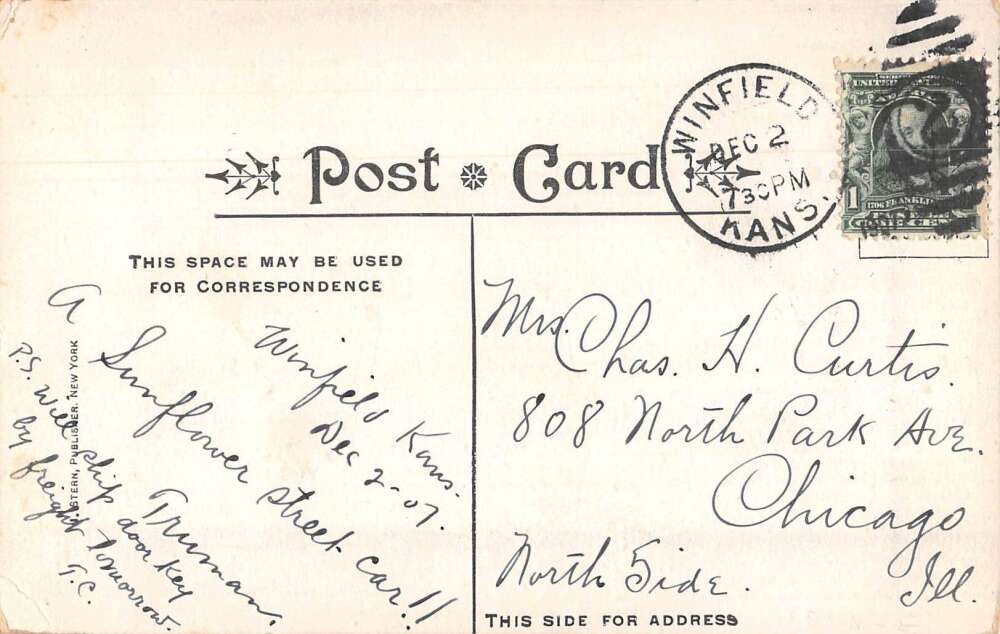 Post Card
THIS SPACE MAY BE USED
FOR CORRESPONDENCE
Winfield Kans.
Dec 2-07.
A Sunflower street car!!
Truman.
P.S. will ship door key
by freight tomorrow.
T.C.
STERN, PUBLISHER. NEW YORK
WINFIELD
DEC 2
730PM
KANS.
1
FRANKLIN
Mrs. Chas. H. Curtis.
808 North Park Ave.
Chicago
North Side.
Ill.
THIS SIDE FOR ADDRESS